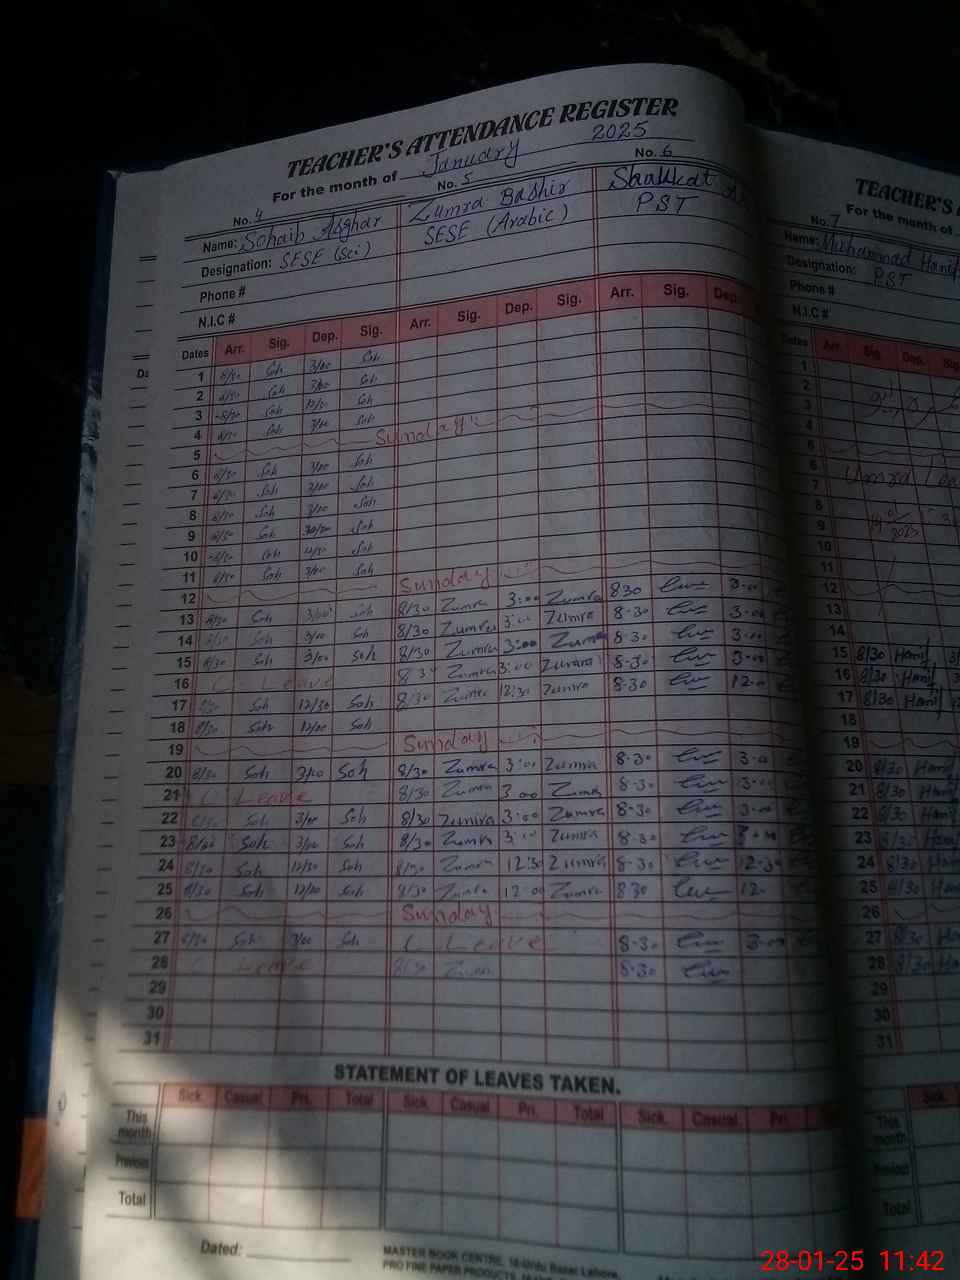 TEACHER'S ATTENDANCE REGISTER
For the month of January 2025
No. 4 No. 5 No. 6
Name: Sohaib Asghar Zumra Bashir Shaukat
Designation: SESE (Sci) SESE (Arabic) PST
Phone #
N.I.C #
Dates Arr. Sig. Dep. Sig. Arr. Sig. Dep. Sig. Arr. Sig. Dep.
1 8/30 Soh 3/00 Soh
2 8/30 Soh 3/00 Soh
3 8/30 Soh 12/30 Soh
4 8/30 Soh 3/00 Soh
5 Sunday
6 8/30 Soh 3/00 Soh
7 8/30 Soh 3/00 Soh
8 8/30 Soh 3/00 Soh
9 8/30 Soh Soh
10 8/30 Soh Soh
11 8/30 Soh 3/00 Soh
12 Sunday
13 8/30 Soh 3/00 Soh 8/30 Zumra 3:00 Zumra 8 30 3-00
14 8/30 Soh 3/00 Soh 8/30 Zumra 3:00 Zumra 8-30 3-00
15 8/30 Soh 3/00 Soh 8/30 Zumra 3:00 Zumra 8-30 3-00
16 C Leave 8/30 Zumra 3:00 Zumra 8-30 3-00
17 8/30 Soh 12/30 Soh 8/30 Zumra 12:30 Zumra 8-30 12-0
18 8/30 Soh 12/00 Soh
19 Sunday
20 8/30 Soh 3/00 Soh 8/30 Zumra 3:00 Zumra 8-30 3-0
21 C Leave 8/30 Zumra 3:00 Zumra 8-30 3-00
22 8/30 Soh 3/00 Soh 8/30 Zumra 3:00 Zumra 8-30 3-00
23 8/30 Soh 3/00 Soh 8/30 Zumra 3:00 Zumra 8-30
24 8/30 Soh 12/30 Soh 8/30 Zumra 12:30 Zumra 8-30 12-30
25 8/30 Soh 12/00 Soh 8/30 Zumra 12:00 Zumra 8 30 12-
26 Sunday
27 8/30 Soh 3/00 Soh C Leave 8-30 3-00
28 C Leave 8/30 Zumra 8-30
29
30
31
STATEMENT OF LEAVES TAKEN.
Sick. Casual Pri. Total Sick. Casual Pri. Total Sick. Casual Pri.
This month
Previous
Total
Dated:
MASTER BOOK CENTRE, 16-Urdu Bazar Lahore.
PRO FINE PAPER PRODUCTS,
TEACHER'S
For the month of
No. 7
Name: Muhammad Hanif
Designation: PST
Phone #
N.I.C #
Dates Arr. Sig. Dep. Sig.
1
2
3
4
5
6 Umrah
7
8
9 2025
10
11
12
13
14
15 8/30 Hanif
16 8/30 Hanif
17 8/30 Hanif
18
19
20 8/30 Hanif
21 8/30 Hanif
22 8/30 Hanif
23 8/30 Hanif
24 8/30 Hanif
25 8/30 Hanif
26
27 8/30 Hanif
28 8/30 Hanif
29
30
31
Sick.
This month
Previous
Total
28-01-25 11:42